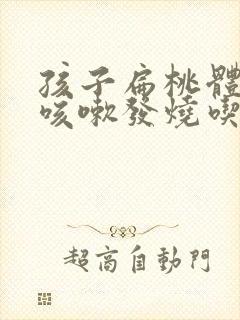 孩子扁桃體
咳嗽發燒喫
超高自動門